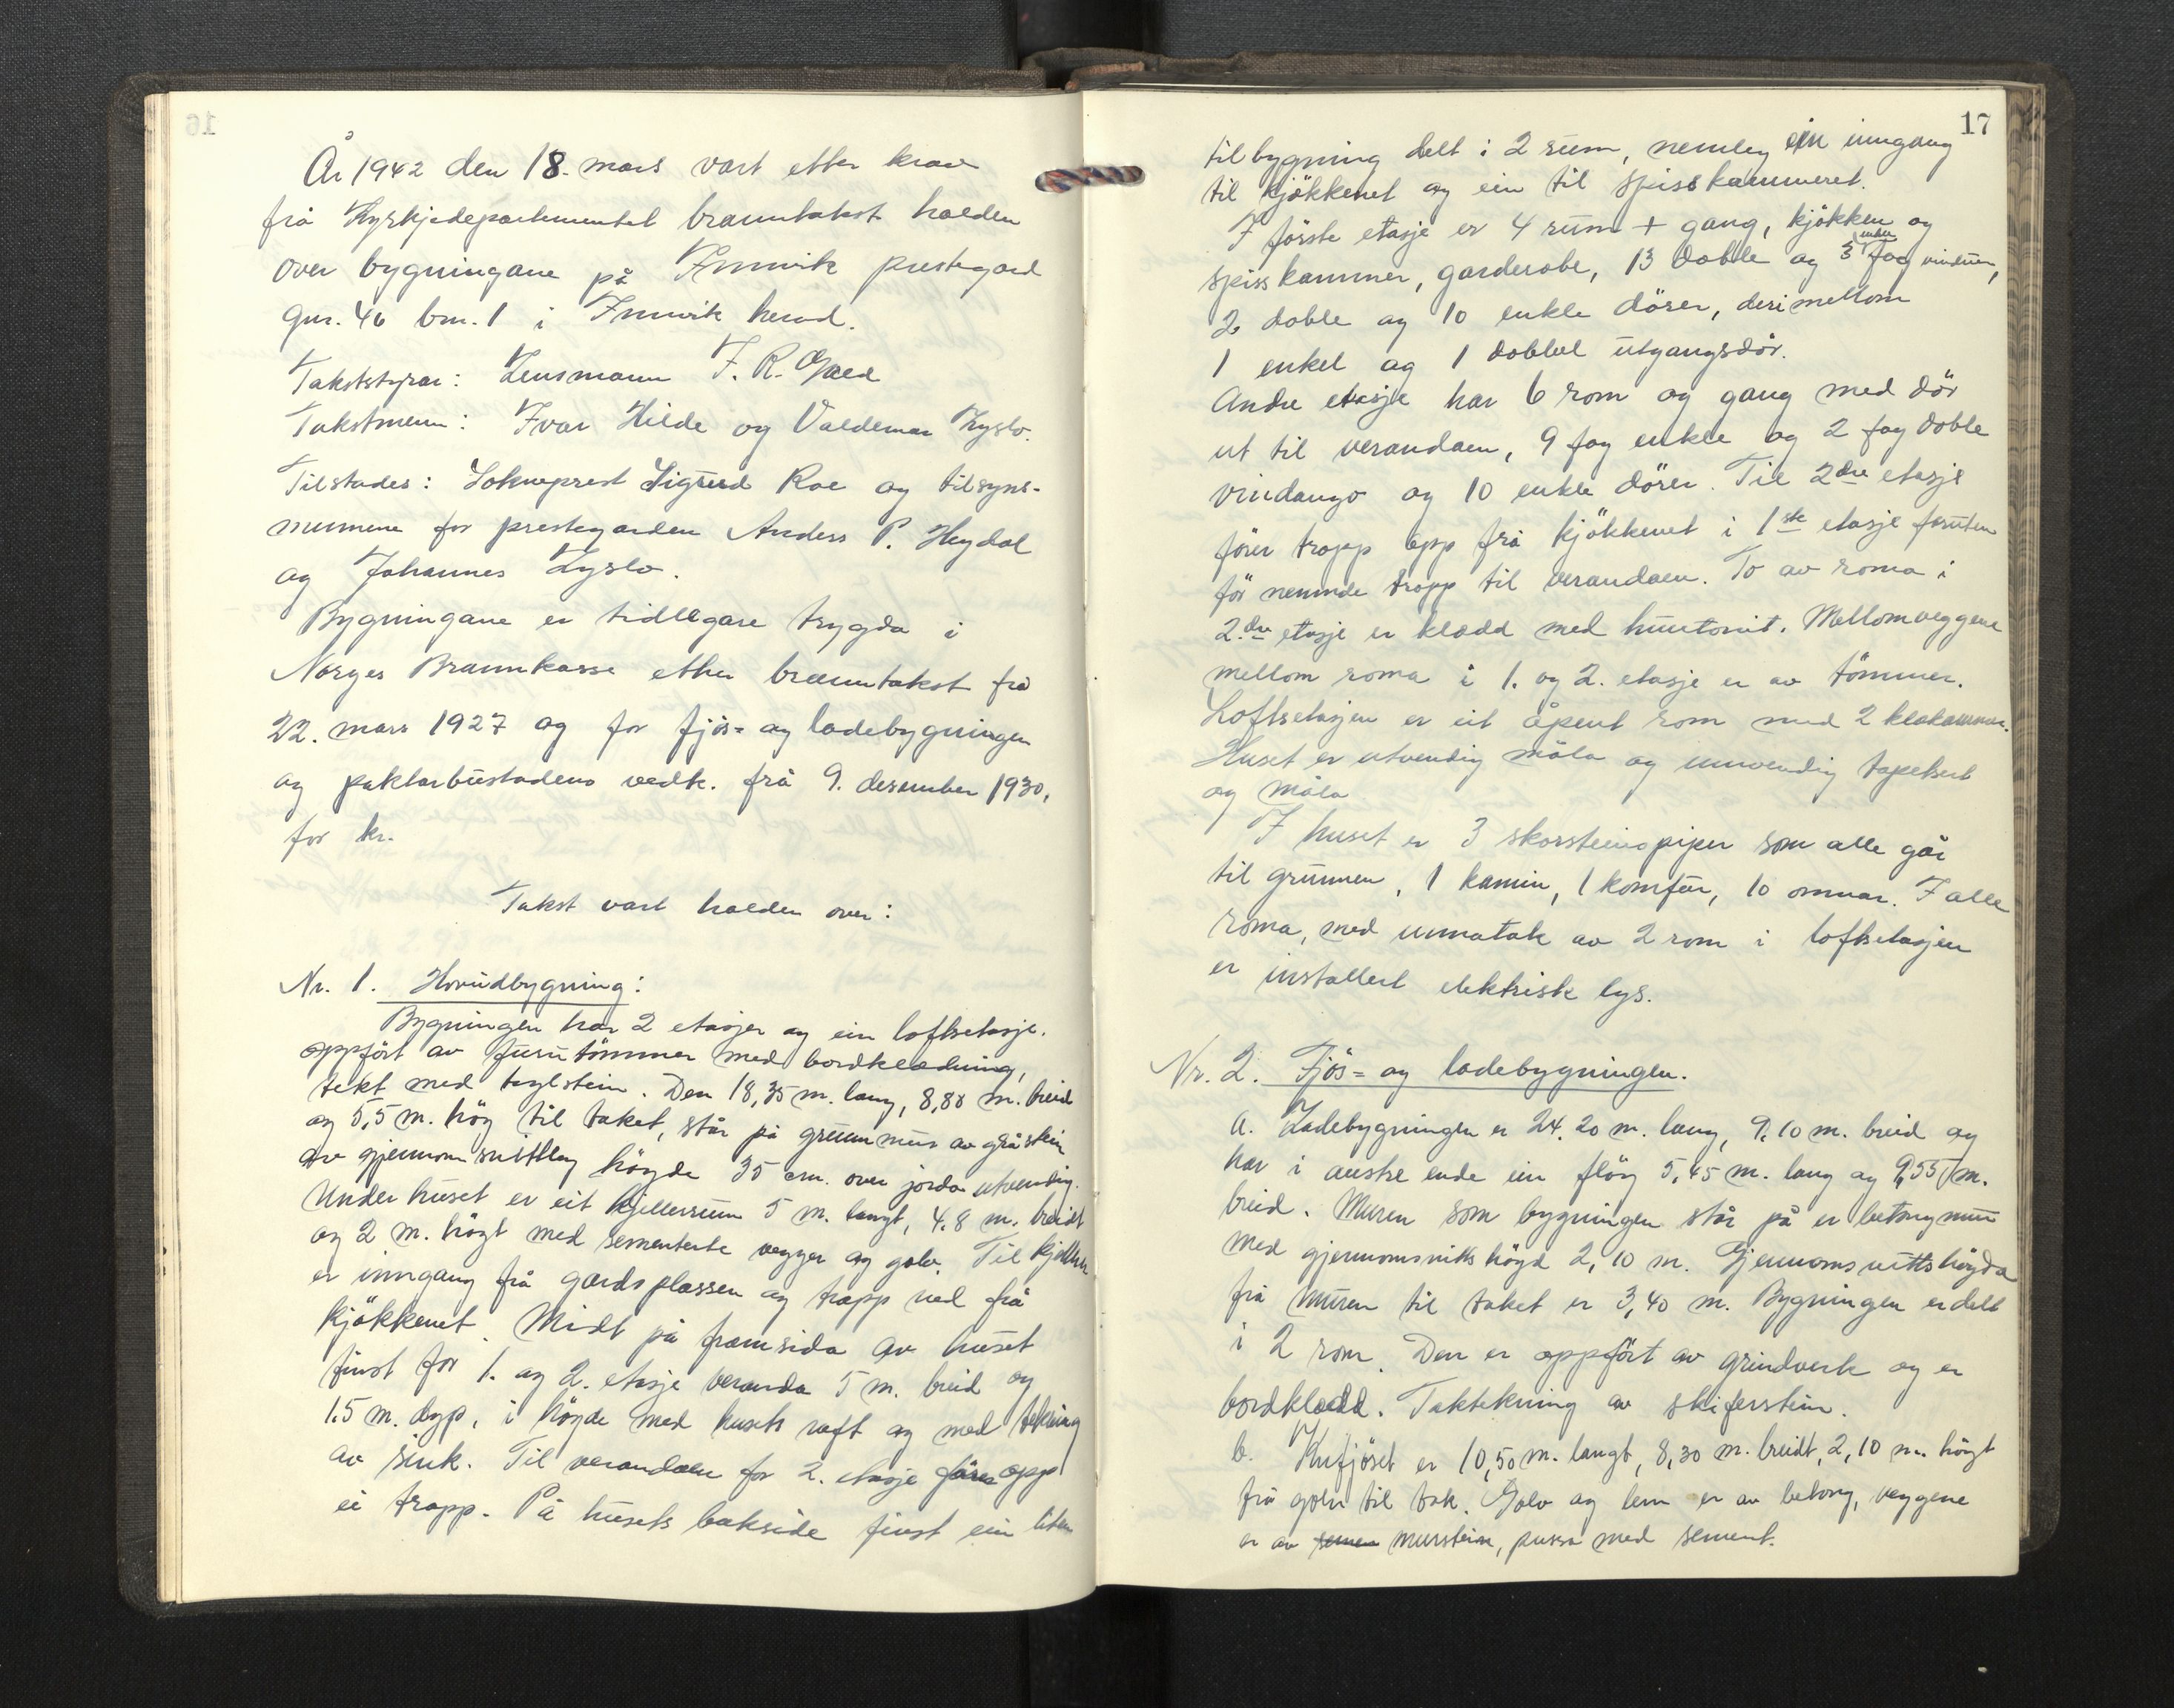 År 1942 den 18. mars vart etter krav
frå Kyrkjedepartementet branntakst halden
over bygningane på Innvik prestegard
gnr. 46 bnr. 1 i Innvik herad.
Takststyrar: Lensmann J. R. Gjæd
Takstmenn: Ivar Hilde og Valdemar Lyslo.
Tilstades: Sokneprest Sigurd Roe og tilsyns-
mennene for prestegarden Anders P. Heggdal
og Johannes Lyslo.
Bygningane er tidlegare trygda i
Norges Brannkasse etter branntakst frå
22. mars 1927 og for fjös= og ladebygningen
og paktarbustadens vedk. frå 9. desember 1930,
for kr.
Takst vart halden over:
Nr. 1. Hovudbygning:
Bygningen har 2 etasjer og ein loftsetasje.
oppfört av furutömmer med bordklædning,
tekt med teglstein. Den 18,35 m. lang, 8,88 m. breid
og 5,5 m. hög til taket, står på grunnmur av gråstein
av gjennomsnittleg högde 35 cm. over jorda utvendig.
Under huset er eit kjellerrum 5 m. langt, 4.8 m. breidt
og 2 m. högt med sementerte vegger og golv. Til kjelleren
er inngang frå gardsplassen og trapp ned frå
kjökkenet. Midt på framsida av huset
finst for 1. og 2. etasje veranda 5 m. breid og
1.5 m. dyp, i högde med husets raft og med tekning
av sink. Til verandaen for 2. etasje förer opp
ei trapp. På husets bakside finst ein liten
17
tilbygning delt i 2 rum, nemleg ein inngang
til kjökkenet og ein til spisskammeret.
I förste etasje er 4 rum + gang, kjökken og
spisskammer, garderobe, 13 doble og 3 enkle fag vinduer,
2 doble og 10 enkle dörer, derimellom
1 enkel og 1 dobbel utgangsdör.
Andre etasje har 6 rom og gang med dör
ut til verandaen, 9 fag enkle og 2 fag doble
vindaugo og 10 enkle dörer. Til 2dre etasje
förer trapp opp frå kjökkenet i 1ste etasje foruten
för nemnde trapp til verandaen. To av roma i
2.dre etasje er klædd med huntonit. Mellomveggene
mellom roma i 1. og 2. etasje er av tömmer.
Loftsetasjen er eit åpent rom med 2 klekammer.
Huset er utvendig måla og innvendig tapetsert
og måla
I huset er 3 skorsteinspiper som alle går
til grunnen, 1 kamin, 1 komfür, 10 omnar. I alle
roma, med unnatak av 2 rom i loftsetasjen
er installert elektrisk lys.
Nr. 2. Fjös= og ladebygningen.
a. Ladebygningen er 24.20 m. lang, 9.10 m. breid og
har i austre ende ein flög 5,45 m. lang og 9,55 m.
breid. Muren som bygningen står på er betongmur
med gjennomsnitts högd 2,10 m. Gjennomsnittshögda
frå muren til taket er 3,40 m. Bygningen er delt
i 2 rom. Den er oppfört av grindverk og er
bordklædd. Taktekning av skiferstein.
b. Kufjöset er 10,50 m. langt, 8,30 m. breidt, 2,10 m. högt
frå golv til tak. Golv og lem er av betong, veggene
er av murstein, pussa med sement.